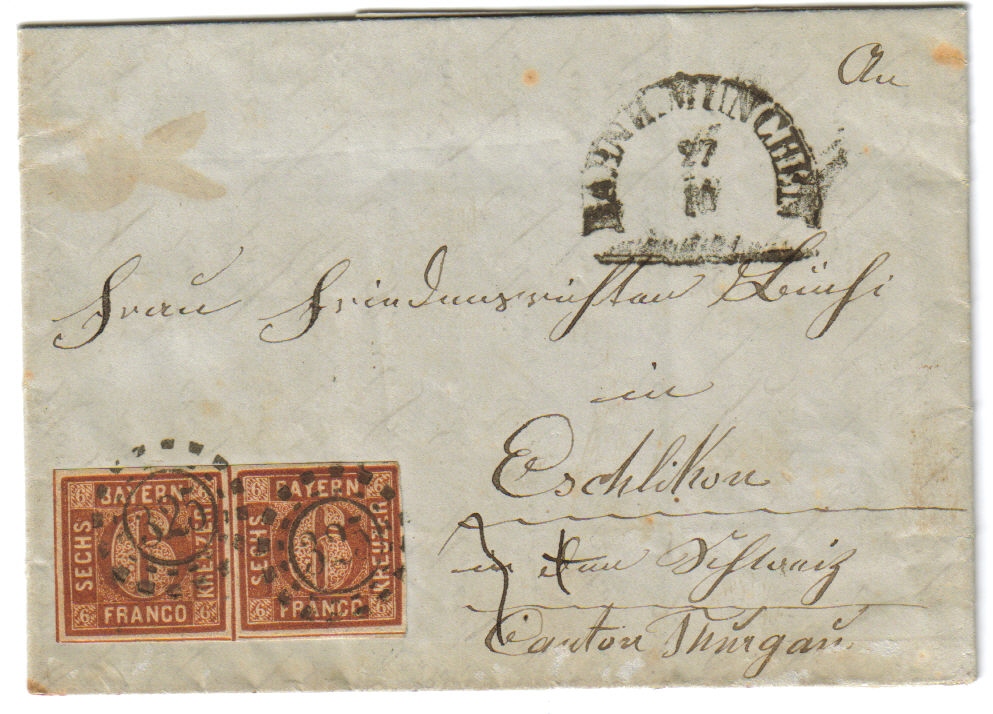 An
BAHNH. MÜNCHEN
27
10
Frau Friedensrichter Büchi
in
Eschlikon
in der Schweiz
Canton Thurgau.
BAYERN
SECHS
KREUZER
FRANCO
6
6
6
6
325
BAYERN
SECHS
KREUZER
FRANCO
6
6
6
325